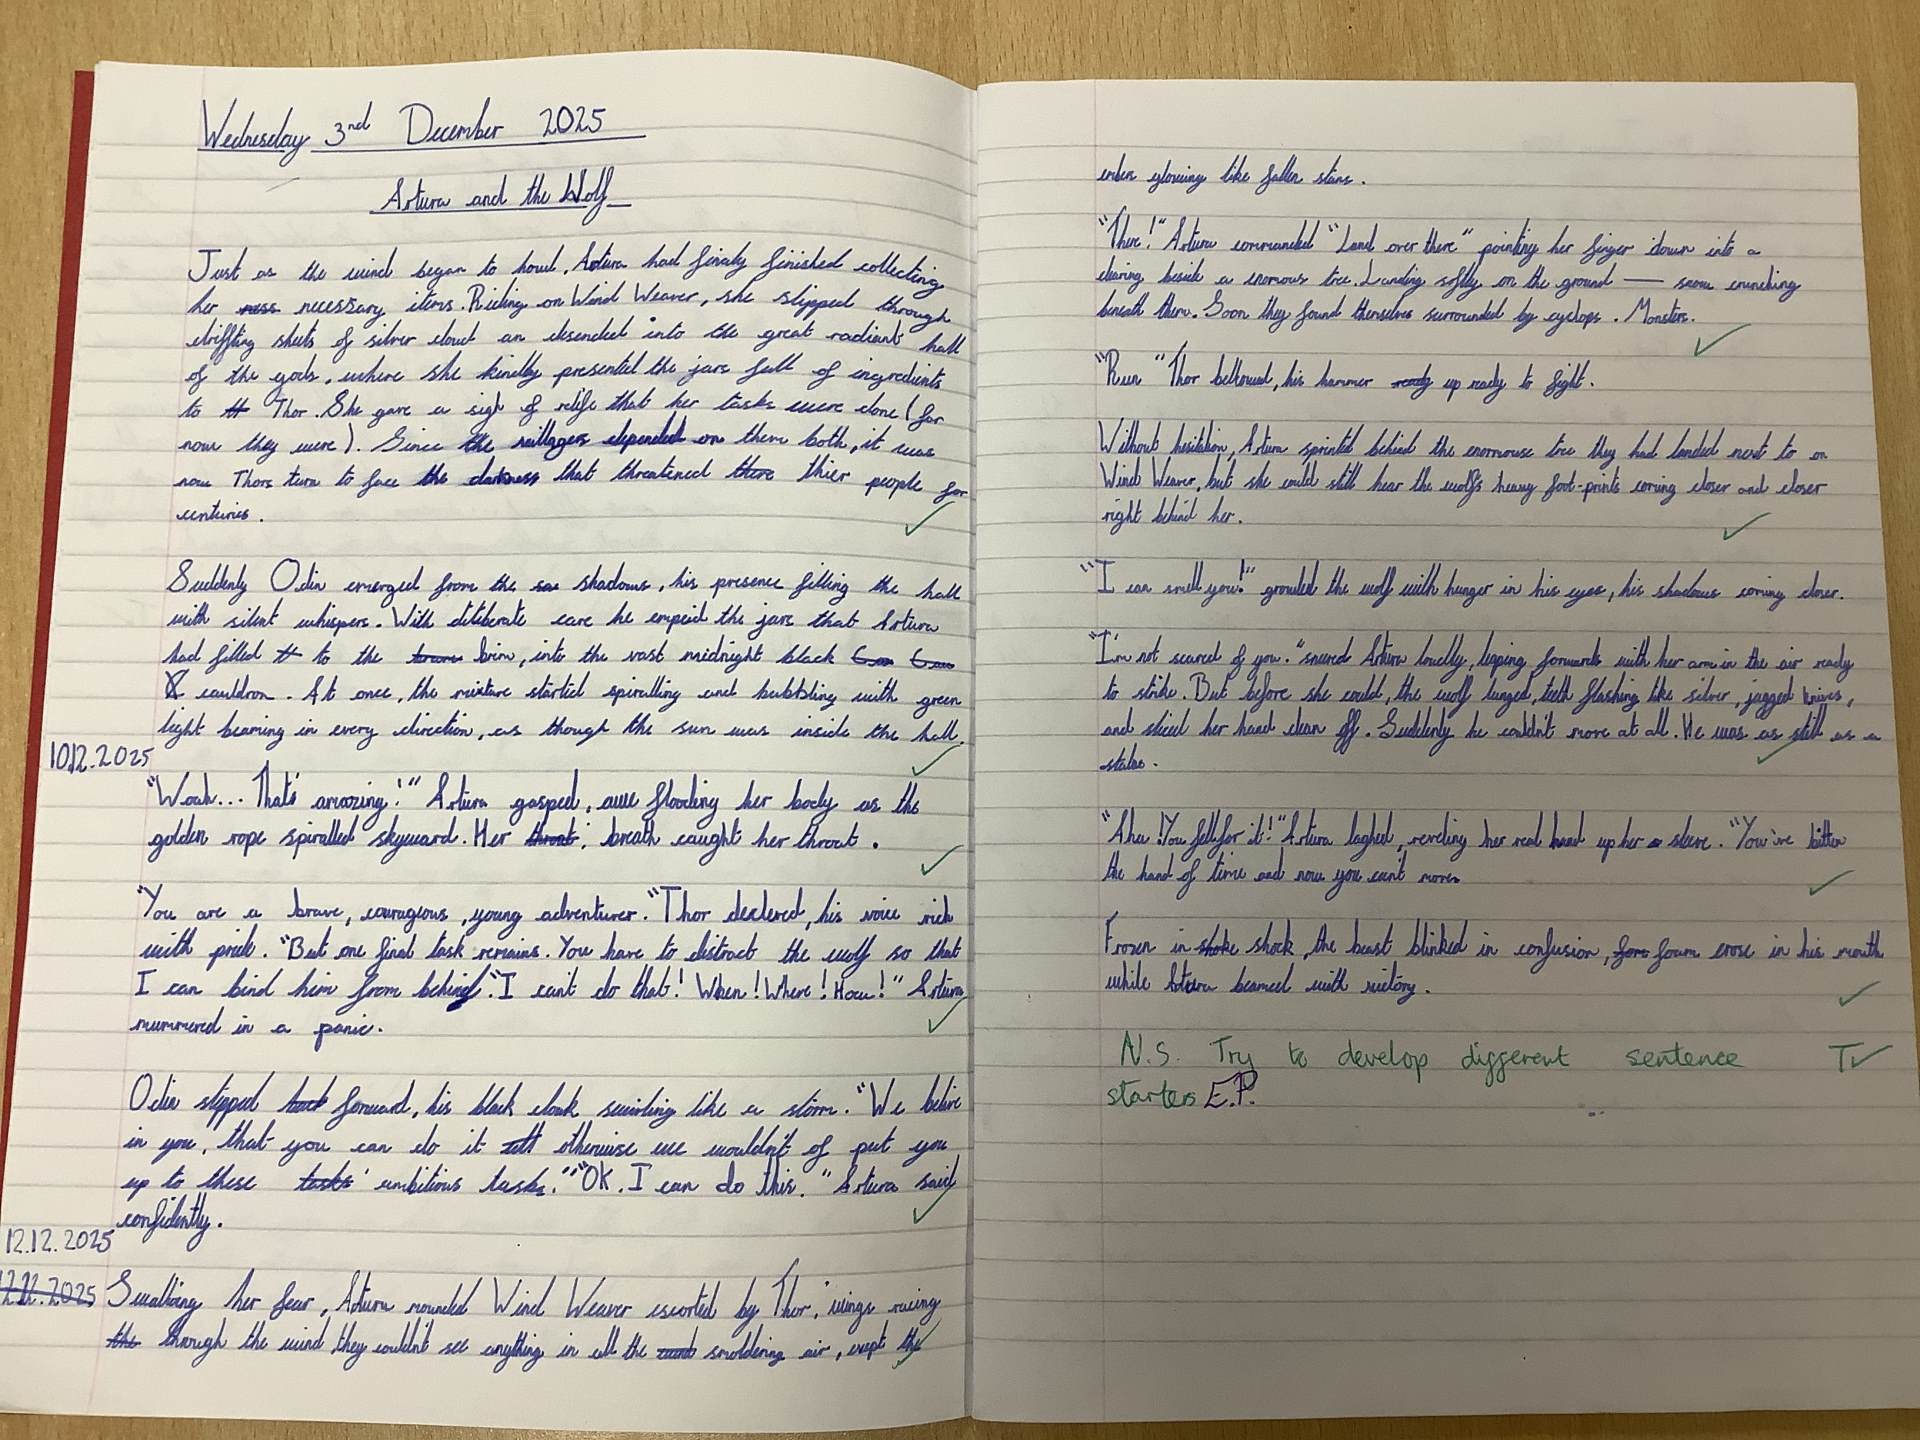 Wednesday 3nd December 2025
Artura and the Wolf
Just as the wind began to howl, Artura had finaly finished collecting
her necessary items. Riding on Wind Weaver, she slipped through
drifting sheets of silver cloud an desended into the great radiant hall
of the gods, where she kindly presented the jars full of ingredients
to Thor. She gave a sigh of relife that her tasks were done (for
now they were). Since the villagers depended on them both, it was
now Thors turn to face the darkness that threatened thier people for
centuries.
Suddenly Odin emerged from the shadows, his presence filling the hall
with silent whispers. With diliberate care he empeid the jars that Artura
had filled to the brim, into the vast midnight black
cauldron. At once, the mixture started spiralling and bubbling with green
light beaming in every direction, as though the sun was inside the hall.
10.12.2025
"Woah... That's amazing!" Artura gasped, awe flooding her body as the
golden rope spiralled skyward. Her breath caught her throat.
"You are a brave, courageous, young adventurer." Thor declered, his voice rich
with pride. "But one final task remains. You have to distract the wolf so that
I can bind him from behind." "I can't do that! When! Where! How!" Artura
mummered in a panic.
Odin stepped forward, his black cloak swirling like a storm. "We belive
in you, that you can do it otherwise we wouldn't of put you
up to these ambitious tasks." "OK. I can do this." Artura said
confidently.
12.12.2025
12.12.2025 Swallwing her fear, Artura mounded Wind Weaver escorted by Thor, wings racing
the through the wind they couldn't see anything in all the smoldering air, exept the
ember glowing like fallen stars.
"There!" Artura commanded "Land over there" pointing her finger down into a
claring beside a enormous tree. Landing softly on the ground — snow crunching
beneath them. Soon they found themselves surrounded by cyclops. Monsters.
"Run" Thor bellowed, his hammer ready up ready to fight.
Without hesitation, Artura sprinted behind the enormouse tree they had landed next to on
Wind Weaver, but she could still hear the wolf's heavy foot-prints coming closer and closer
right behind her.
"I can smell you!" growled the wolf with hunger in his eyes, his shadows coming closer.
"I'm not scared of you." sneered Artura loudly, leping forwards with her arm in the air ready
to strike. But before she could, the wolf lunged, teeth flashing like silver, jagged knives,
and sliced her hand clean off. Suddenly he couldn't move at all. He was as still as a
statue.
"Aha! You fell for it!" Artura laghed, reveling her real hand up her sleeve. "You've bitten
the hand of time and now you can't move.
Frozen in shoke shock, the beast blinked in confusion, foam erose in his mouth
while Artura beamed with victory.
N.S. Try to develop different sentence T✓
starters E.P.